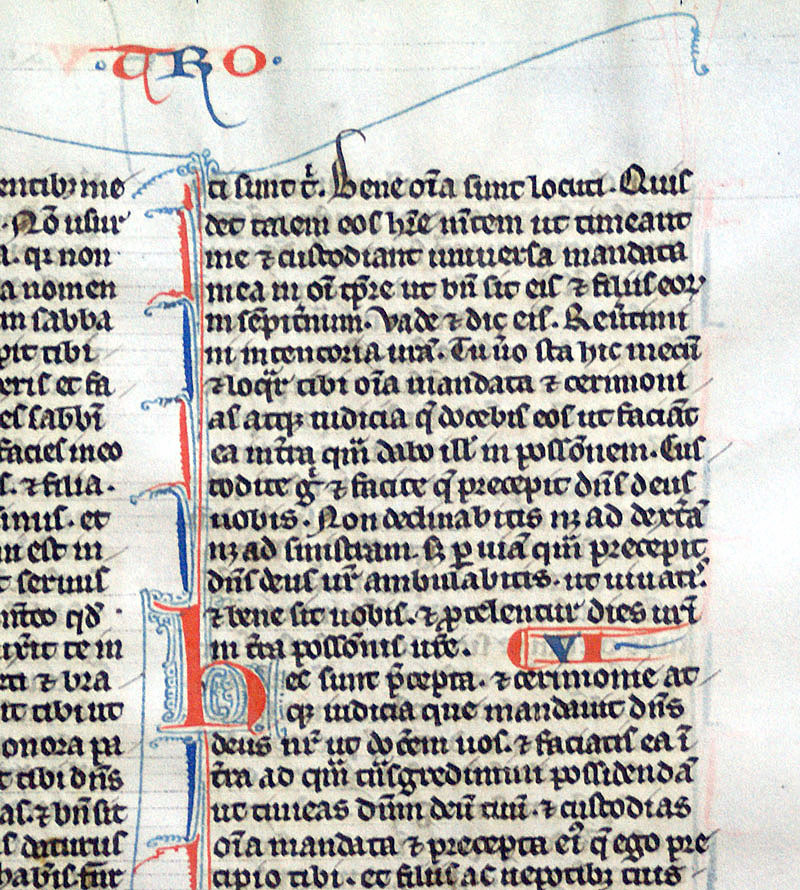 ·TRO·
entibꝫ me
. Nō usur
a. qi non
a nomen
m sabba
pit tibi
eris et fa
es sabbī
facies in eo
s. ⁊ filia.
simus. et
m est in
t seruus
qđ
uxīt te in
rti ⁊ bra
it tibi ut
onora pa
t tibi dn̄s
as. ⁊ bn̄ sit
s daturus
habis. fur
ti sunt t͛. Bene oīa sunt locuti. Quis
det talem eos hr̄e mn̄tem ut timeant
me ⁊ custodiant uniuersa mandata
mea in oī tp̄re ut bn̄ sit eis ⁊ filiis eoꝝ
in sēpitnum. Vade ⁊ dic eis. Reūtimī
in tentoria ura᷑. Tu ūo sta hic mecū
⁊ loqr̄ tibi oīa mandata ⁊ cerimoni
as atqꝫ iudicia q̄ docebis eos ut faciāt
ea in tr̄a quā dabo ill᷑ in possōnem. Cus
todite gͥ ⁊ facite q̄ precepit dn̄s deus
uobis. Non declinabitis nꝫ ad dextā
nꝫ ad sinistram. sꝫ ꝑ uiā quā precepit
dn̄s deus ur̄ ambulabitis. ut uiuatꝭ
⁊ bene sit uobis. ⁊ ꝓtelentur dies urī
in tr̄a possōnis urē. VI
Hec sunt p̄cepta. ⁊ cerimonie at
qꝫ iudicia que mandauit dn̄s
deus nr̄ ut docēem uos. ⁊ faciatis ea ī
tr̄a ad quā tn̄sgredimini possidendā
ut timeas dn̄m deū tuū. ⁊ custodias
oīa mandata ⁊ precepta eꝰ q̄ ego pre
cipio tibi. et filiis ac nepotibꝫ tuis